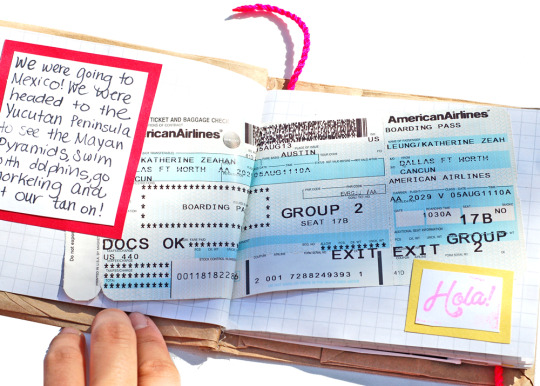 We were going to
Mexico! We were
headed to the
Yucutan Peninsula
to see the Mayan
Pyramids, swim
with dolphins, go
snorkeling and
get our tan on!
TICKET AND BAGGAGE CHECK
AmericanAirlines
KATHERINE ZEAH
DALLAS FT WORTH
CANCUN
BOARDING PA
DOCS OK
US 440
05AUG13
US
AUSTIN
05AUG1110A
GROUP 2
SEAT 17B
EXIT
2 001 7288249393 1
AmericanAirlines
BOARDING PASS
LEUNG/KATHERINE ZEAH
DALLAS FT WORTH
CANCUN
AMERICAN AIRLINES
AA 2029 V 05AUG1110A
1030A
17B
NO
EXIT GROUP 2
Hola!